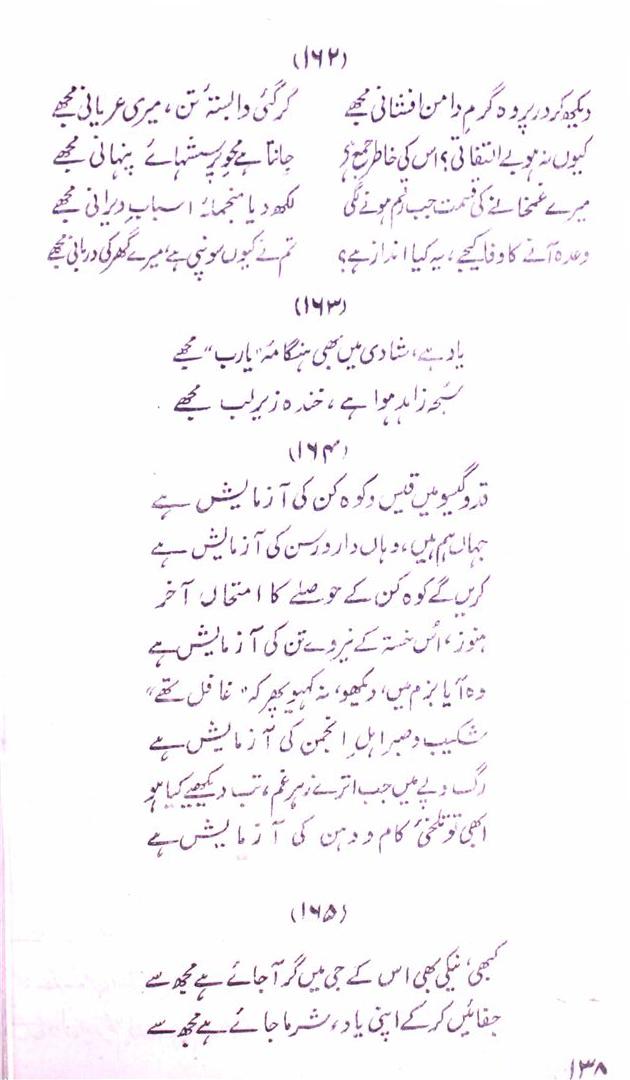 (۱۶۲)
دیکھ کر در پردہ گرمِ دامن افشانی مجھے کر گئی وابستۂ تن، میری عریانی مجھے
کیوں نہ ہو بے التفاتی؟ اس کی خاطر جمع ہے جانتا ہے محوِ پرسشہائے پنہانی مجھے
میرے غمخانے کی قسمت جب رقم ہونے لگی لکھ دیا منجملۂ اسبابِ ویرانی مجھے
وعدہ آنے کا وفا کیجے، یہ کیا انداز ہے؟ تم نے کیوں سونپی ہے میرے گھر کی دربانی مجھے
(۱۶۳)
یاد ہے، شادی میں بھی ہنگامۂ "یارب" مجھے
سبحۂ زاہد ہوا ہے، خندہ زیرِ لب مجھے
(۱۶۴)
قد و گیسو میں قیس و کوہ کن کی آزمایش ہے
جہاں ہم ہیں، وہاں دار و رسن کی آزمایش ہے
کریں گے کوہ کن کے حوصلے کا امتحاں آخر
ہنوز، اُس خستہ کے نیروے تن کی آزمایش ہے
وہ آیا بزم میں، دیکھو، نہ کہیو پھر کہ "غافل تھے"
شکیب و صبرِ اہلِ انجمن کی آزمایش ہے
رگ و پے میں جب اترے زہرِ غم، تب دیکھیے کیا ہو
ابھی تو تلخیِ کام و دہن کی آزمایش ہے
(۱۶۵)
کبھی، نیکی بھی اس کے جی میں گر آجائے ہے مجھ سے
جفائیں کر کے اپنی یاد، شرما جائے ہے مجھ سے
۱۳۸